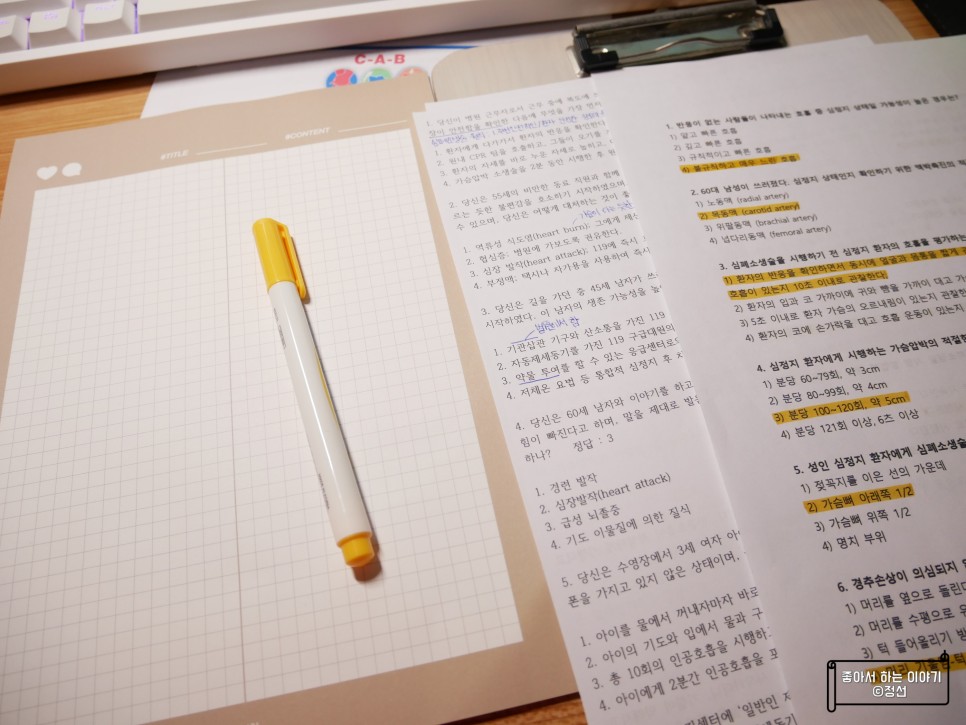 C-A-B
#TITLE
#CONTENT
1. 당신이 병원 근무자로서 근무 중에
1. 환자에게 다가가서 환자의 반응을 확인한다
2. 원내 CPR 팀을 호출하고, 그들이 오기를
3. 환자의 자세를 바로 누운 자세로 눕히고,
4. 가슴압박 소생술을 2분 동안 시행한 후
2. 당신은 55세의 비만한 동료 직원과 함께
르는 듯한 불편감을 호소하기 시작하였으며
수 있으며, 당신은 어떻게 대처하는 것이
1. 역류성 식도염(heart burn): 그에게 제산
2. 협심증: 병원에 가보도록 권유한다.
3. 심장 발작(heart attack): 119에 즉시
4. 부정맥: 택시나 자가용을 사용하여 즉시
3. 당신은 길을 가던 중 45세 남자가
시작하였다. 이 남자의 생존 가능성을
병원에서 함
1. 기관삽관 기구와 산소통을 가진 119
2. 자동제세동기를 가진 119 구급대원의
3. 약물 투여를 할 수 있는 응급센터로
4. 저체온 요법 등 통합적 심정지 후
4. 당신은 60세 남자와 이야기를 하고
힘이 빠진다고 하며, 말을 제대로
하나? 정답 : 3
1. 경련 발작
2. 심장발작(heart attack)
3. 급성 뇌졸중
4. 기도 이물질에 의한 질식
5. 당신은 수영장에서 3세 여자
폰을 가지고 있지 않은 상태이며,
1. 아이를 물에서 꺼내자마자 바로
2. 아이의 기도와 입에서 물과
3. 총 10회의 인공호흡을 시행하
4. 아이에게 2분간 인공호흡을
'일반인
1. 반응이 없는 사람들이 나타내는 호흡 중 심정지 상태일 가능성이 높은 경우는?
1) 얕고 빠른 호흡
2) 깊고 빠른 호흡
3) 규칙적이고 빠른 호흡
4) 불규칙하고 매우 느린 호흡
2. 60대 남성이 쓰러졌다. 심정지 상태인지 확인하기 위한 맥박촉진의
1) 노동맥 (radial artery)
2) 목동맥 (carotid artery)
3) 위팔동맥 (brachial artery)
4) 넙다리동맥 (femoral artery)
3. 심폐소생술을 시행하기 전 심정지 환자의 호흡을 평가하는
1) 환자의 반응을 확인하면서 동시에 얼굴과 몸통을
호흡이 있는지 10초 이내로 관찰한다.
2) 환자의 입과 코 가까이에 귀와 뺨을 가까이 대고
3) 5초 이내로 환자 가슴의 오르내림이 있는지 관찰한
4) 환자의 코에 손가락을 대고 호흡 운동이 있는지
4. 심정지 환자에게 시행하는 가슴압박의 적절한
1) 분당 60~79회, 약 3cm
2) 분당 80~99회, 약 4cm
3) 분당 100~120회, 약 5cm
4) 분당 121회 이상, 6즈 이상
5. 성인 심정지 환자에게 심폐소생술
1) 젖꼭지를 이은 선의 가운데
2) 가슴뼈 아래쪽 1/2
3) 가슴뼈 위쪽 1/2
4) 명치 부위
6. 경추손상이 의심되지
1) 머리를 옆으로 돌린다
2) 머리를 수평으로
3) 턱 들어올리기
좋아서 하는 이야기
©정선